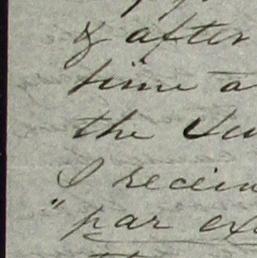 & after
time a
the
I receiv
"par ex